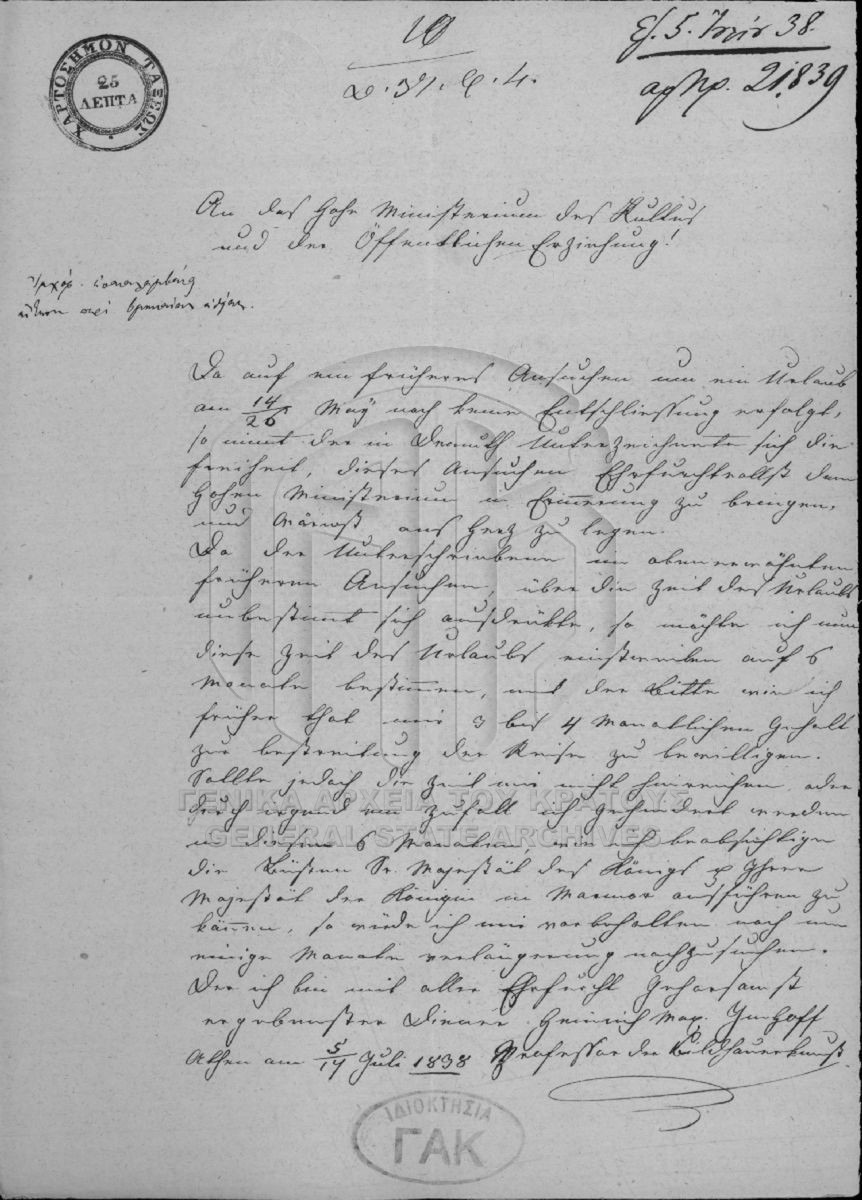 ΧΑΡΤΟΣΗΜΟΝ ΤΑΞΕΩΣ
25
ΛΕΠΤΑ
10
38.
21,839
An das Hohe Ministerium des Kultus
und der Öffentlichen Erziehung!
Da auf ein früheres Ansuchen um ein Urlaub
am 14/26 May noch keine Entschliessung erfolgt,
so nimmt der in Demuth Unterzeichnete sich die
freiheit, dieses Ansuchen Ehrfurchtvollst dem
Hohen Ministerium in Erinnerung zu bringen,
und ans Herz zu legen.
Da der Unterschriebene im oben erwähnten
früheren Ansuchen, über die Zeit des Urlaubs
unbestimt sich ausdrükte, so möchte ich nun
diese Zeit des Urlaubs einstweilen auf 6
Monate bestimmen, mit der Bitte wie ich
früher that mir 3 bis 4 Monatlichen Gehalt
zur bestreitung der Reise zu bewilligen.
Sollte jedoch die Zeit mir nicht hinreichen, oder
durch irgend ein Zufall ich gehindert werden
in diesen 6 Monaten, wie ich beabsichtige
die Büsten Sr. Majestät des Königs Ihrer
Majestät der Königin in Marmor ausführen zu
können, so würde ich mir vorbehalten noch um
einige Monate verlängerung nachzusuchen.
Der ich bin mit aller Ehrfurcht Gehorsamst
ergebenster Diener Heinrich Max. Imhoff
Athen am 5/17 Juli 1838 Professor der Bildhauerkunst
ΓΕΝΙΚΑ ΑΡΧΕΙΑ ΤΟΥ ΚΡΑΤΟΥΣ
GENERAL STATE ARCHIVES
ΙΔΙΟΚΤΗΣΙΑ
ΓΑΚ